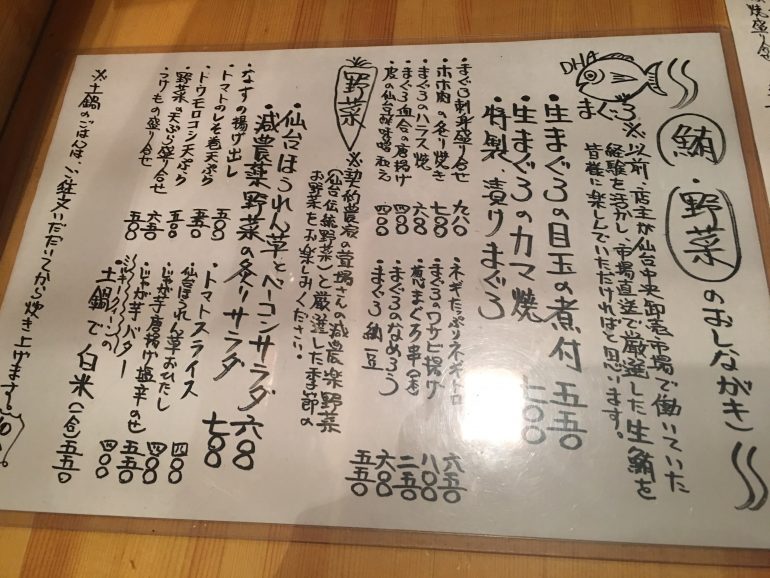 鮪・野菜のおしながき
DHA
まぐろ
※以前、店主が仙台中央卸売市場で働いていた
経験を活かし、市場直送で厳選した生鮪を
皆様に楽しんでいただければと思います。
・生まぐろの目玉の煮付 五五〇
・生まぐろのカマ焼 七〇〇
・特製、漬けまぐろ
・まぐろ刺身盛り合せ 九八〇
・ホホ肉の炙り焼き 七八〇
・まぐろのハラス焼 六八〇
・まぐろ血合の唐揚げ 四八〇
・皮の仙台酢味噌和え 四〇〇
・ネギたっぷりネギトロ 六五〇
・まぐろのワサビ揚げ 八〇〇
・葱まぐろ串(一本) 二五〇
・まぐろのなめろう 六八〇
・まぐろ納豆 五五〇
野菜
※契約農家の萱場さんの減農薬野菜
(仙台伝統野菜)と厳選した季節の
お野菜をお楽しみください。
・仙台ほうれん草とベーコンサラダ 六八〇
・減農薬野菜の炙りサラダ 七八〇
・なすの揚げ出し 五八〇
・トマトのしそ巻天ぷら 五五〇
・トウモロコシ天ぷら 五五〇
・野菜の天ぷら盛り合せ 六五〇
・つけもの盛り合せ 四五〇
・トマトスライス 四〇〇
・仙台ほうれん草おひたし 四〇〇
・じゃが芋唐揚げ塩辛のせ 五五〇
・じゃが芋バター 四〇〇
シャリクイーンの
・土鍋で白米(一合) 五五〇
※土鍋のごはんは、ご注文いただいてから炊き上げます。